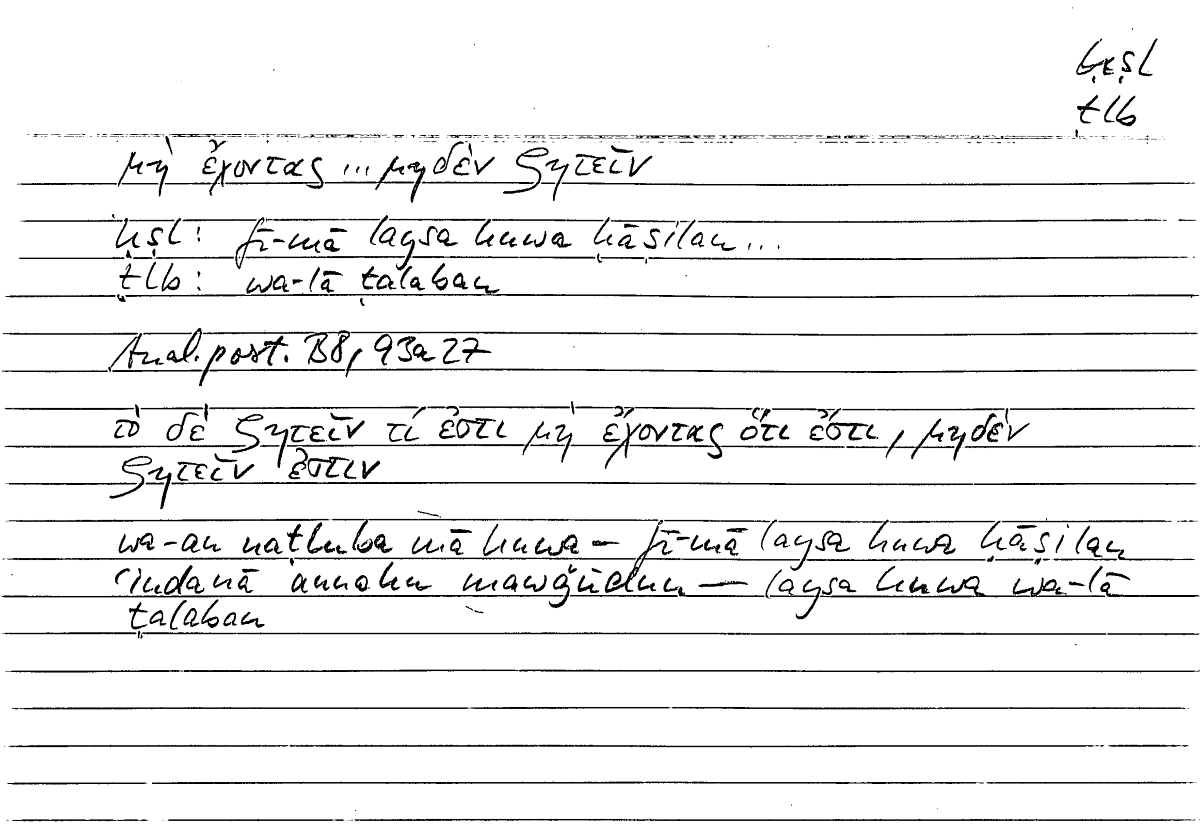 ḥṣl
ṭlb
μὴ ἔχοντας ... μηδὲν ζητεῖν
ḥṣl: fī-mā laysa huwa ḥāṣilan ...
ṭlb: wa-lā ṭalaban
Anal. post. B8, 93a27
τὸ δὲ ζητεῖν τί ἐστι μὴ ἔχοντας ὅτι ἔστι, μηδὲν
ζητεῖν ἐστιν
wa-an naṭluba mā huwa – fī-mā laysa huwa ḥāṣilan
ʿindanā annahu mawǧūdun – laysa huwa wa-lā
ṭalaban